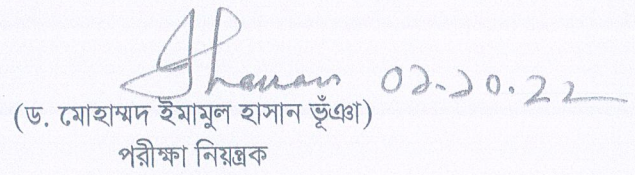 02.10.22
(ড. মোহাম্মদ ইমামুল হাসান ভূঁঞা)
পরীক্ষা নিয়ন্ত্রক